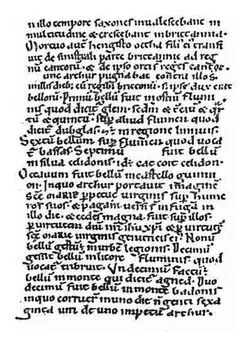 In illo tempore saxones invalescebant in
multitudine & crescebant in brittannia.
Mortuo aut hengisto octha fili ei transi
uit de sinistrali parte brittannie ad reg
nu cantoru. & de ipso orti reges cantor.
Tunc arthur pugnabat contra illos
in illis dieb; cu regib; brittonu. s; ipse dux erat
belloru. Primu bellu fuit in ostiu flumi
nis quod dicit glein. secdm & tciu & qr
tu & quintu. sup aliud flumen quod
dicit dubglas. & in regione linnuis.
Sextu bellum sup flumen quod uoca
t bassas. Septimu fuit bellu
in silua celidonis. id; e cat coit celidon.
Octauum fuit bellu in castello guinni
on. In quo arthur portauit imagine
sce marie ppetue uirginis sup humer
ros suos. & pagani uersi s in fuga in
illo die. & cedes magna fuit sup illos.
p uirtute dni nri ihu xpi & p uirtute
sce marie uirginis genetricis ei. Nonu
bellu gestu e in urbe legionis. Decimu
gessit bellu in litore fluminis quod
uocat tribruit. Undecimu factu e
bellu in monte qui dicit agned. Duo
decimu fuit bellu in monte badonis.
in quo corruer in uno die nongenti sexa
ginta uiri de uno impetu arthur.